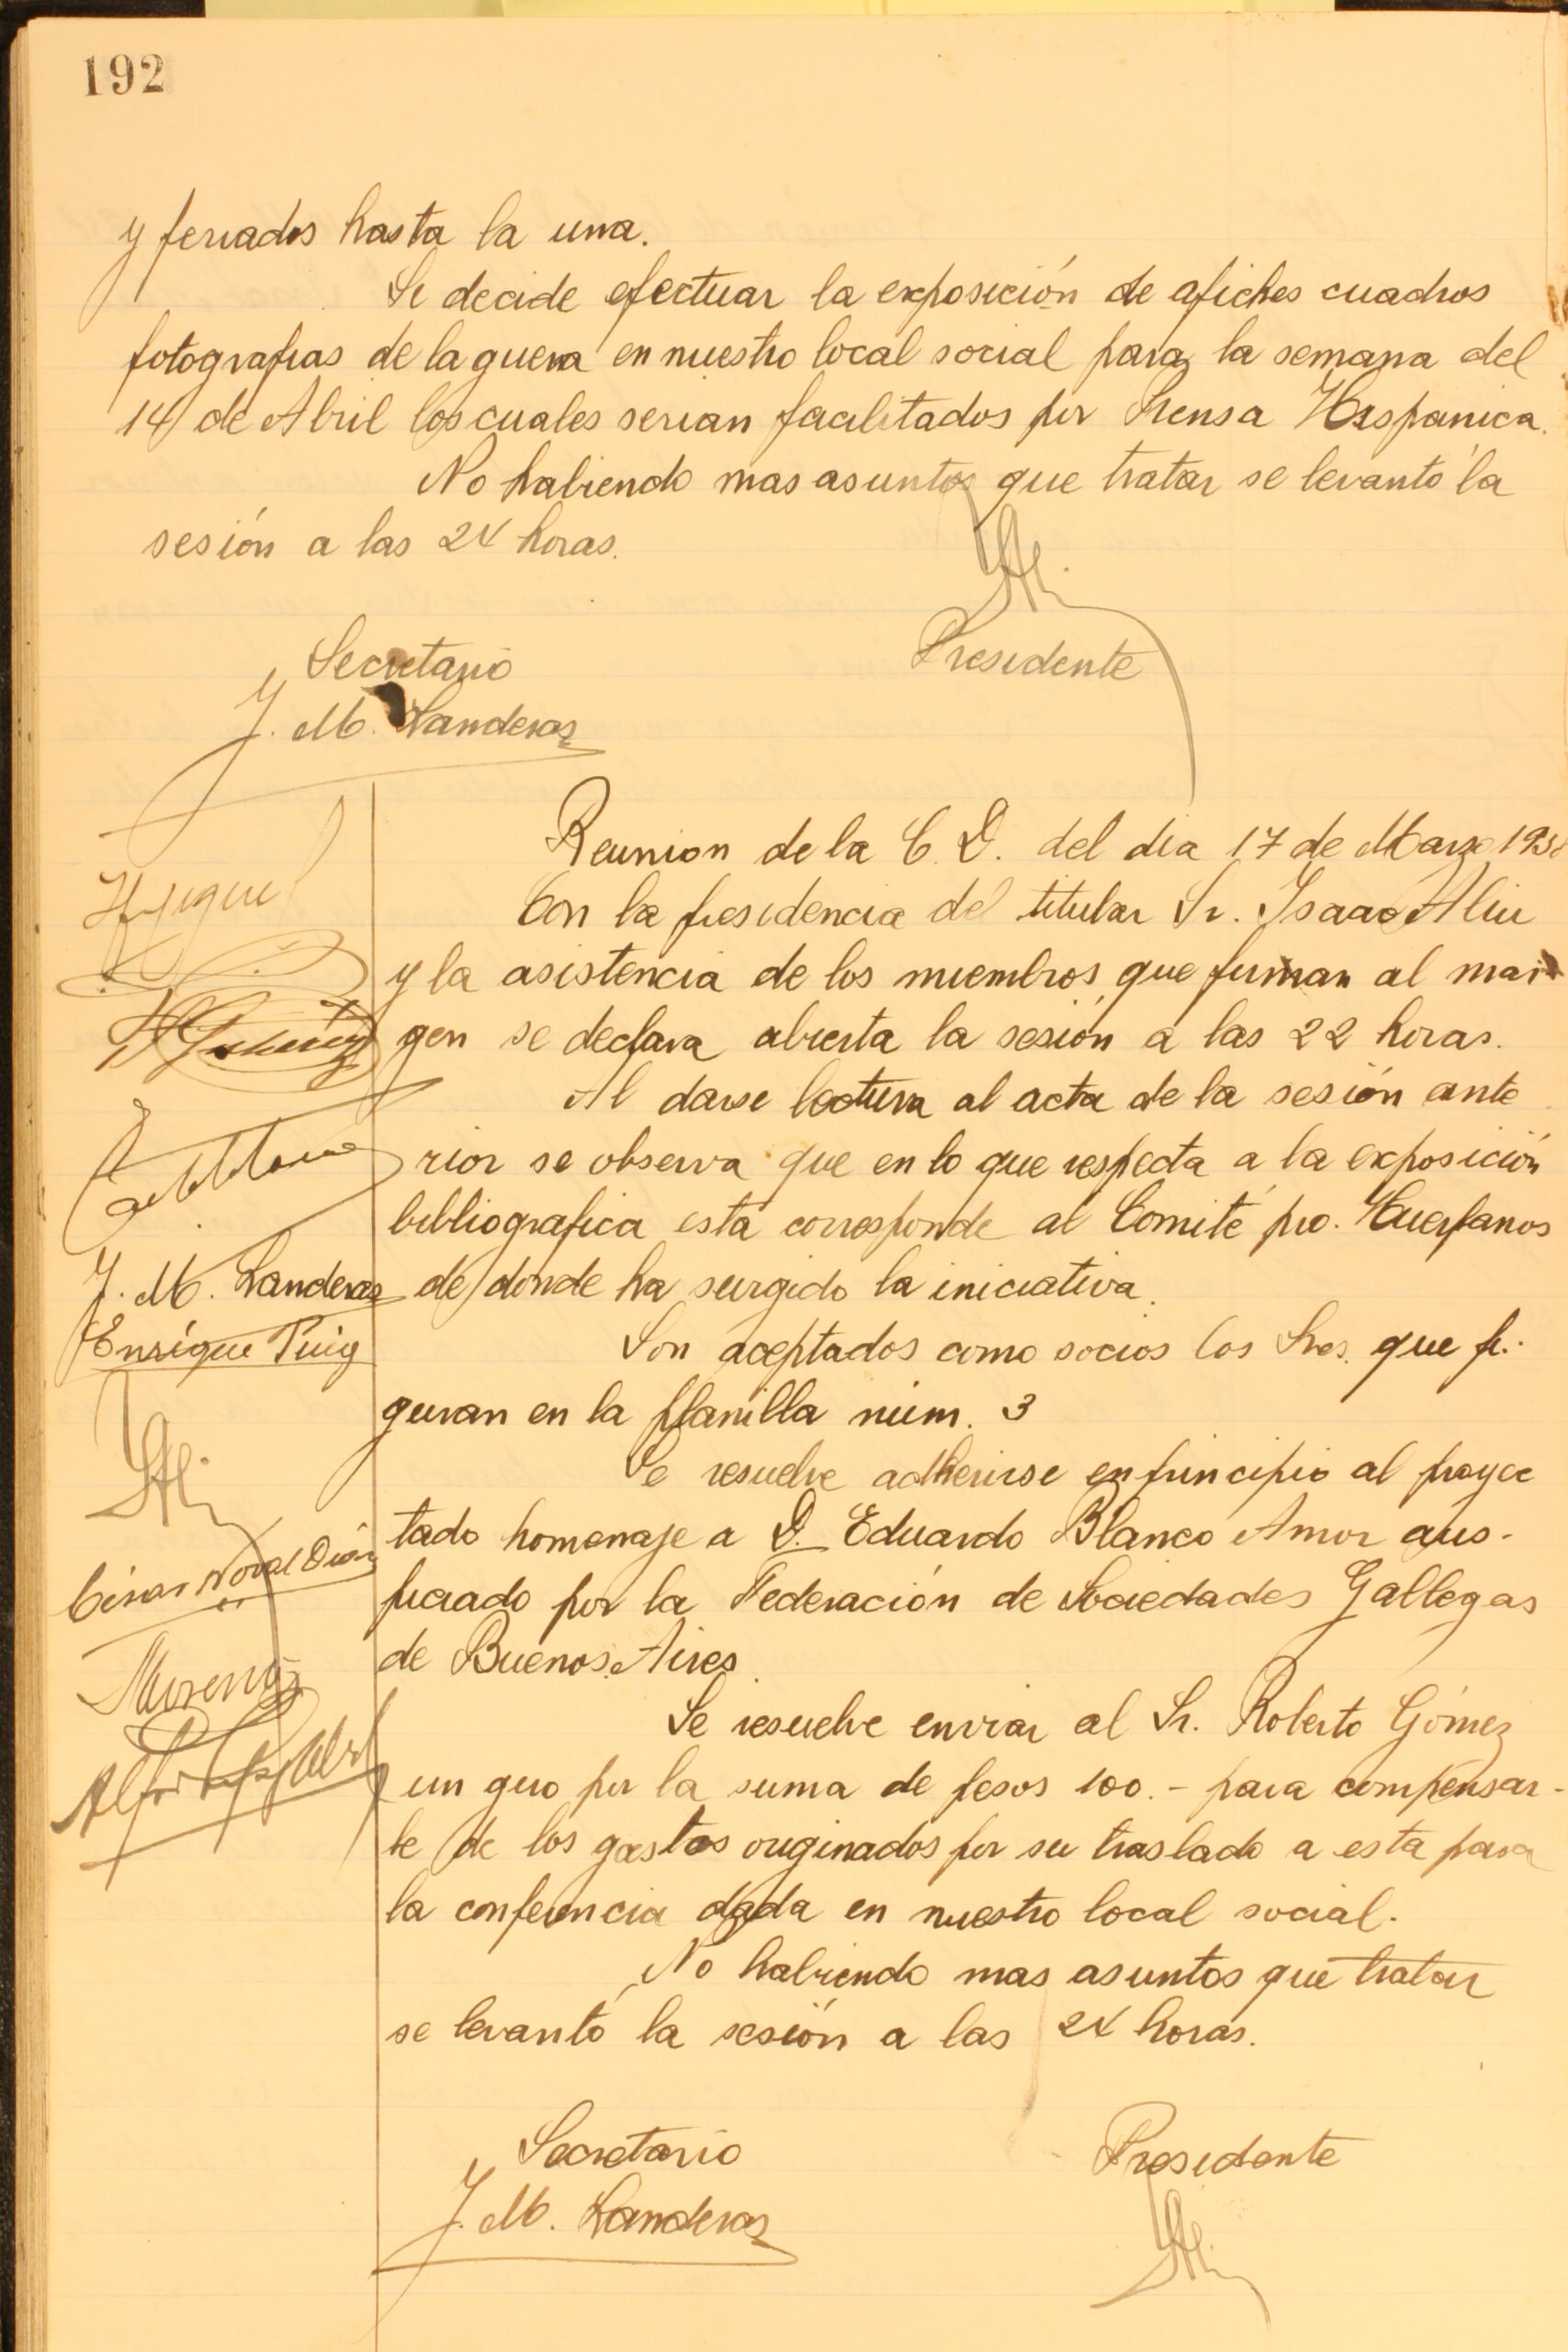 192
y feriados hasta la una.
Se decide efectuar la exposición de afiches cuadros
fotografias de la guerra en nuestro local social para la semana del
14 de Abril los cuales serian facilitados por Prensa Hispanica.
No habiendo mas asuntos que tratar se levantó la
sesión a las 24 horas.
Secretario
Presidente
J. M. Landeras
Reunion de la C. D. del dia 17 de Marzo
Con la presidencia del titular Sr. Isaac
y la asistencia de los miembros que firman al mar
gen se declara abierta la sesión a las 22 horas.
Al darse lectura al acta de la sesión ante
rior se observa que en lo que respecta a la exposición
bibliografica esta corresponde al Comité pro. Huerfanos
de donde ha surgido la iniciativa.
Son aceptados como socios los Sres. que fi-
guran en la planilla núm. 3
Se resuelve adherirse en principio al proyec
tado homenaje a D. Eduardo Blanco Amor aus-
piciado por la Federación de Sociedades Gallegas
de Buenos Aires.
Se resuelve enviar al Sr. Roberto Gómez
un giro por la suma de pesos 100.- para compensar-
le de los gastos originados por su traslado a esta para
la conferencia dada en nuestro local social.
No habiendo mas asuntos que tratar
se levantó la sesión a las 24 horas.
J. M. Landeras
Enrique Puig
Moreno
Secretario
Presidente
J. M. Landeras